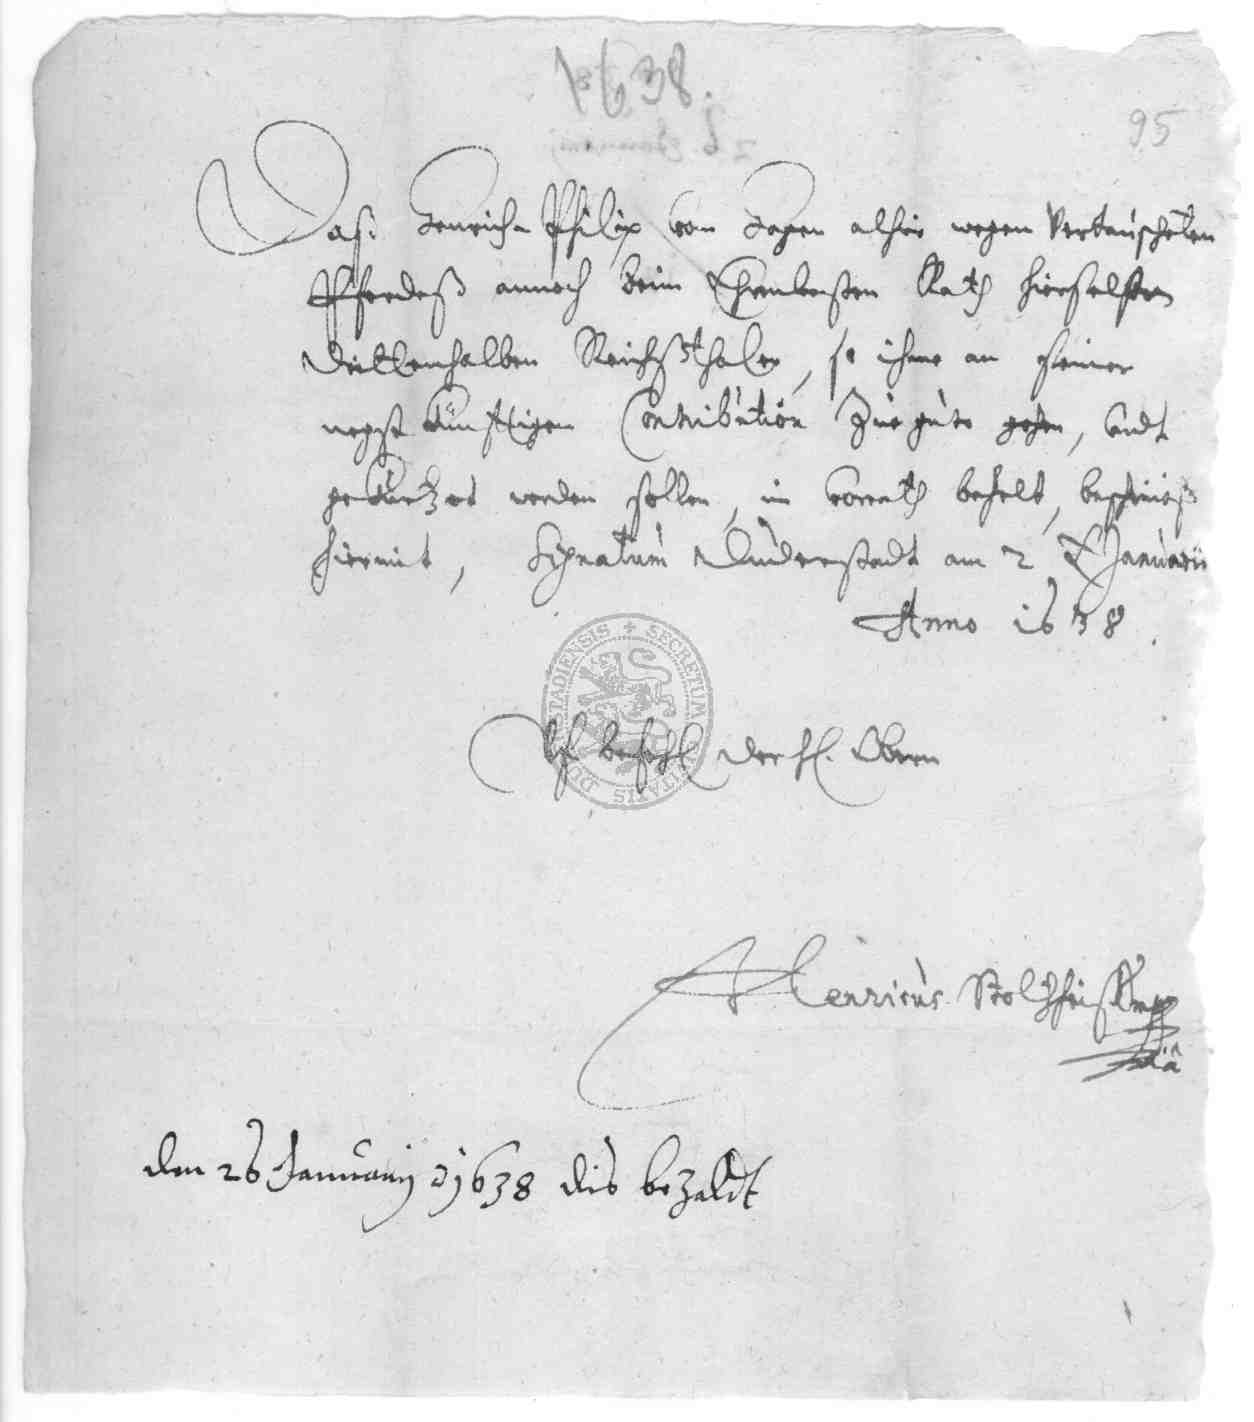 1638.
95
Das Henrich Philip von Hagen alhier wegen Vertauscheten
Pferdeß annoch beim Ehrnvesten Rath hierselbsten
drittenhalben Reichßthaler, so ihme an seiner
negst künfftigen Contribution zue gute gehen, undt
gekürtzet werden sollen, im vorrath behelt, bescheineß
hiermit, Signatum Duderstadt am 2 Januarii
Anno 1638.
SECRETUM CIVITATIS DUDERSTADIENSIS
Uf Befehl der H. Obern
Henricus Stoltzheiß mpp
ia
den 26 January 1638 dis bezaldt